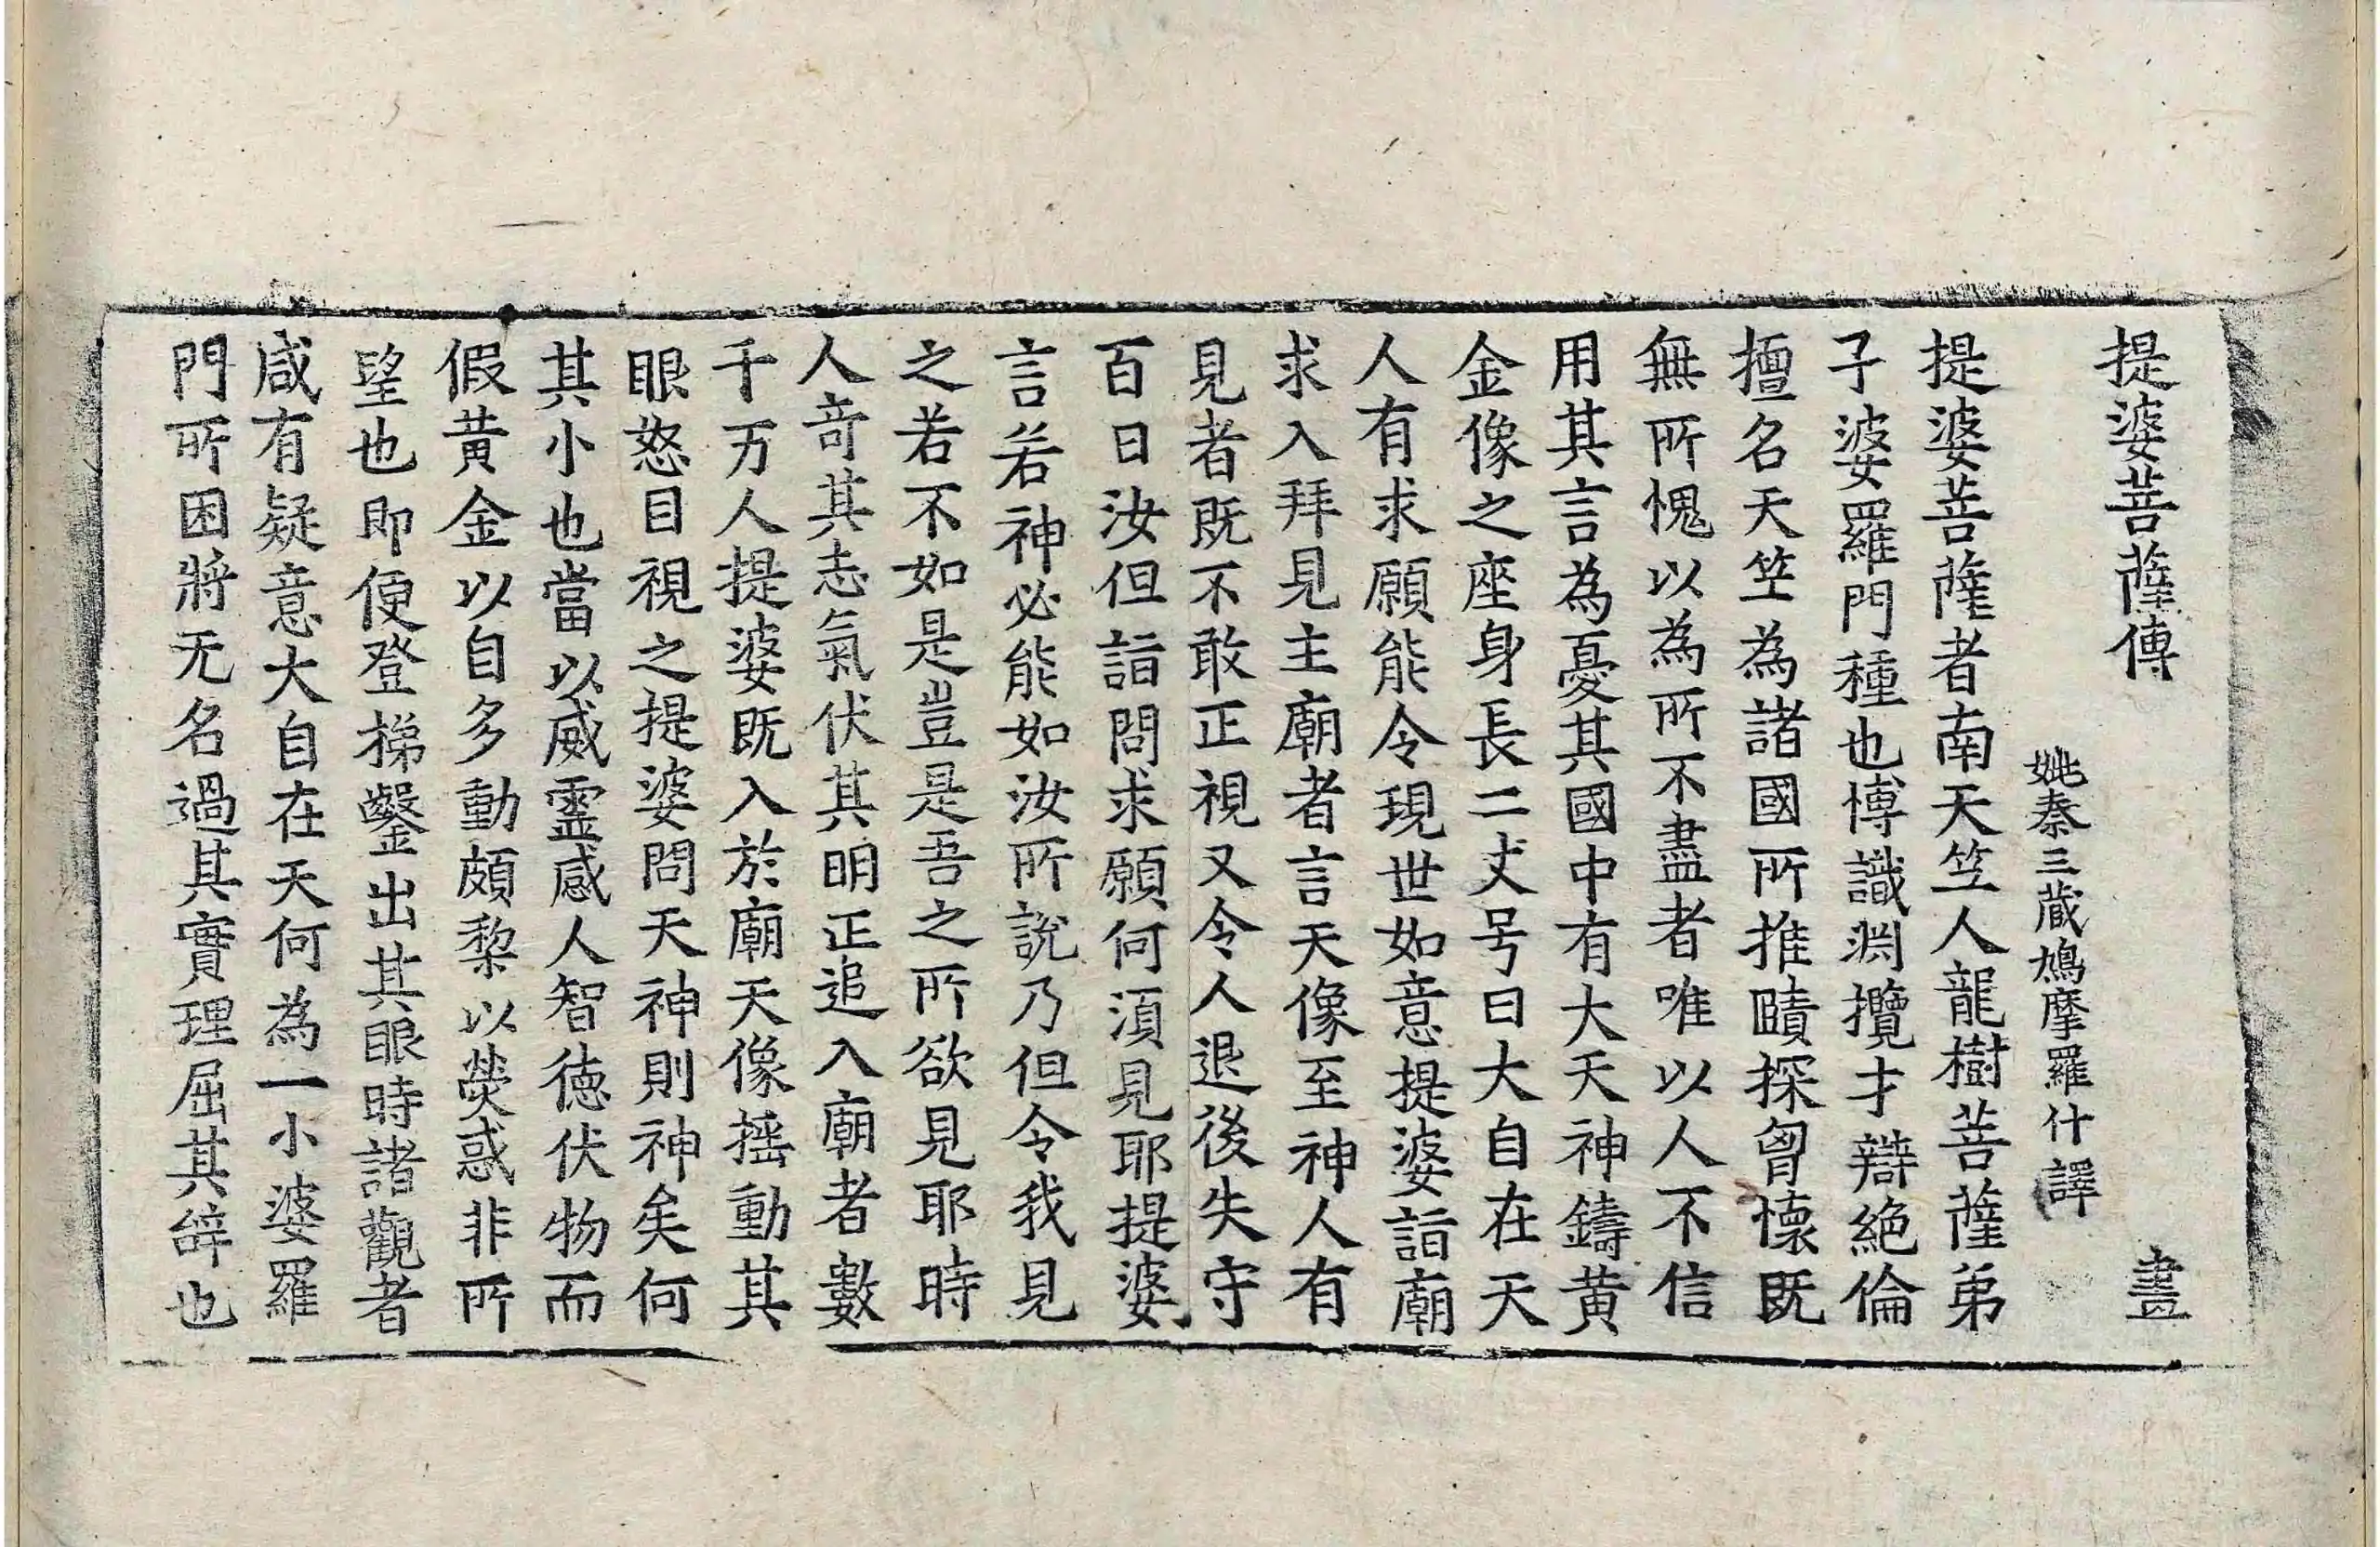 提婆菩薩傳 畫
姚秦三蔵鳩摩羅什譯
提婆菩薩者南天竺人龍樹菩薩弟
子婆羅門種也博識淵攬才辯絶倫
擅名天竺為諸國所推賾探胷懷既
無所愧以為所不盡者唯以人不信
用其言為憂其國中有大天神鑄黄
金像之座身長二丈号曰大自在天
人有求願能令現世如意提婆詣廟
求入拜見主廟者言天像至神人有
見者既不敢正視又令人退後失守
百日汝但詣問求願何湏見耶提婆
言若神必能如汝所說乃但令我見
之若不如是豈是吾之所欲見耶時
人竒其志氣伏其明正追入廟者數
千万人提婆既入於廟天像揺動其
眼怒目視之提婆問天神則神矣何
其小也當以威靈感人智徳伏物而
假黄金以自多動頗棃以熒惑非所
望也即便登梯鑿出其眼時諸觀者
咸有疑意大自在天何為一小婆羅
門所困將无名過其實理屈其辝也